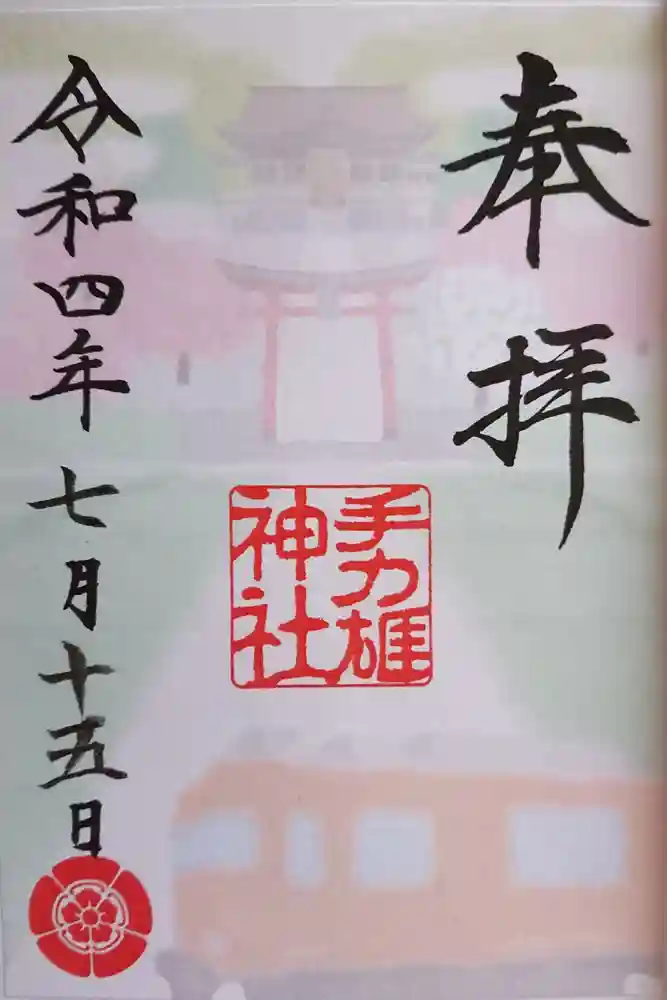 奉拝
手力雄
神社
令和四年七月十五日